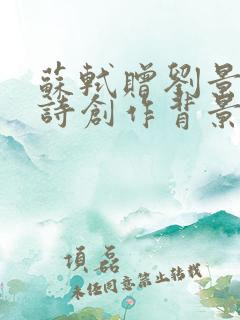 蘇軾贈劉景
詩創作背景
項磊
未经同意禁止转载